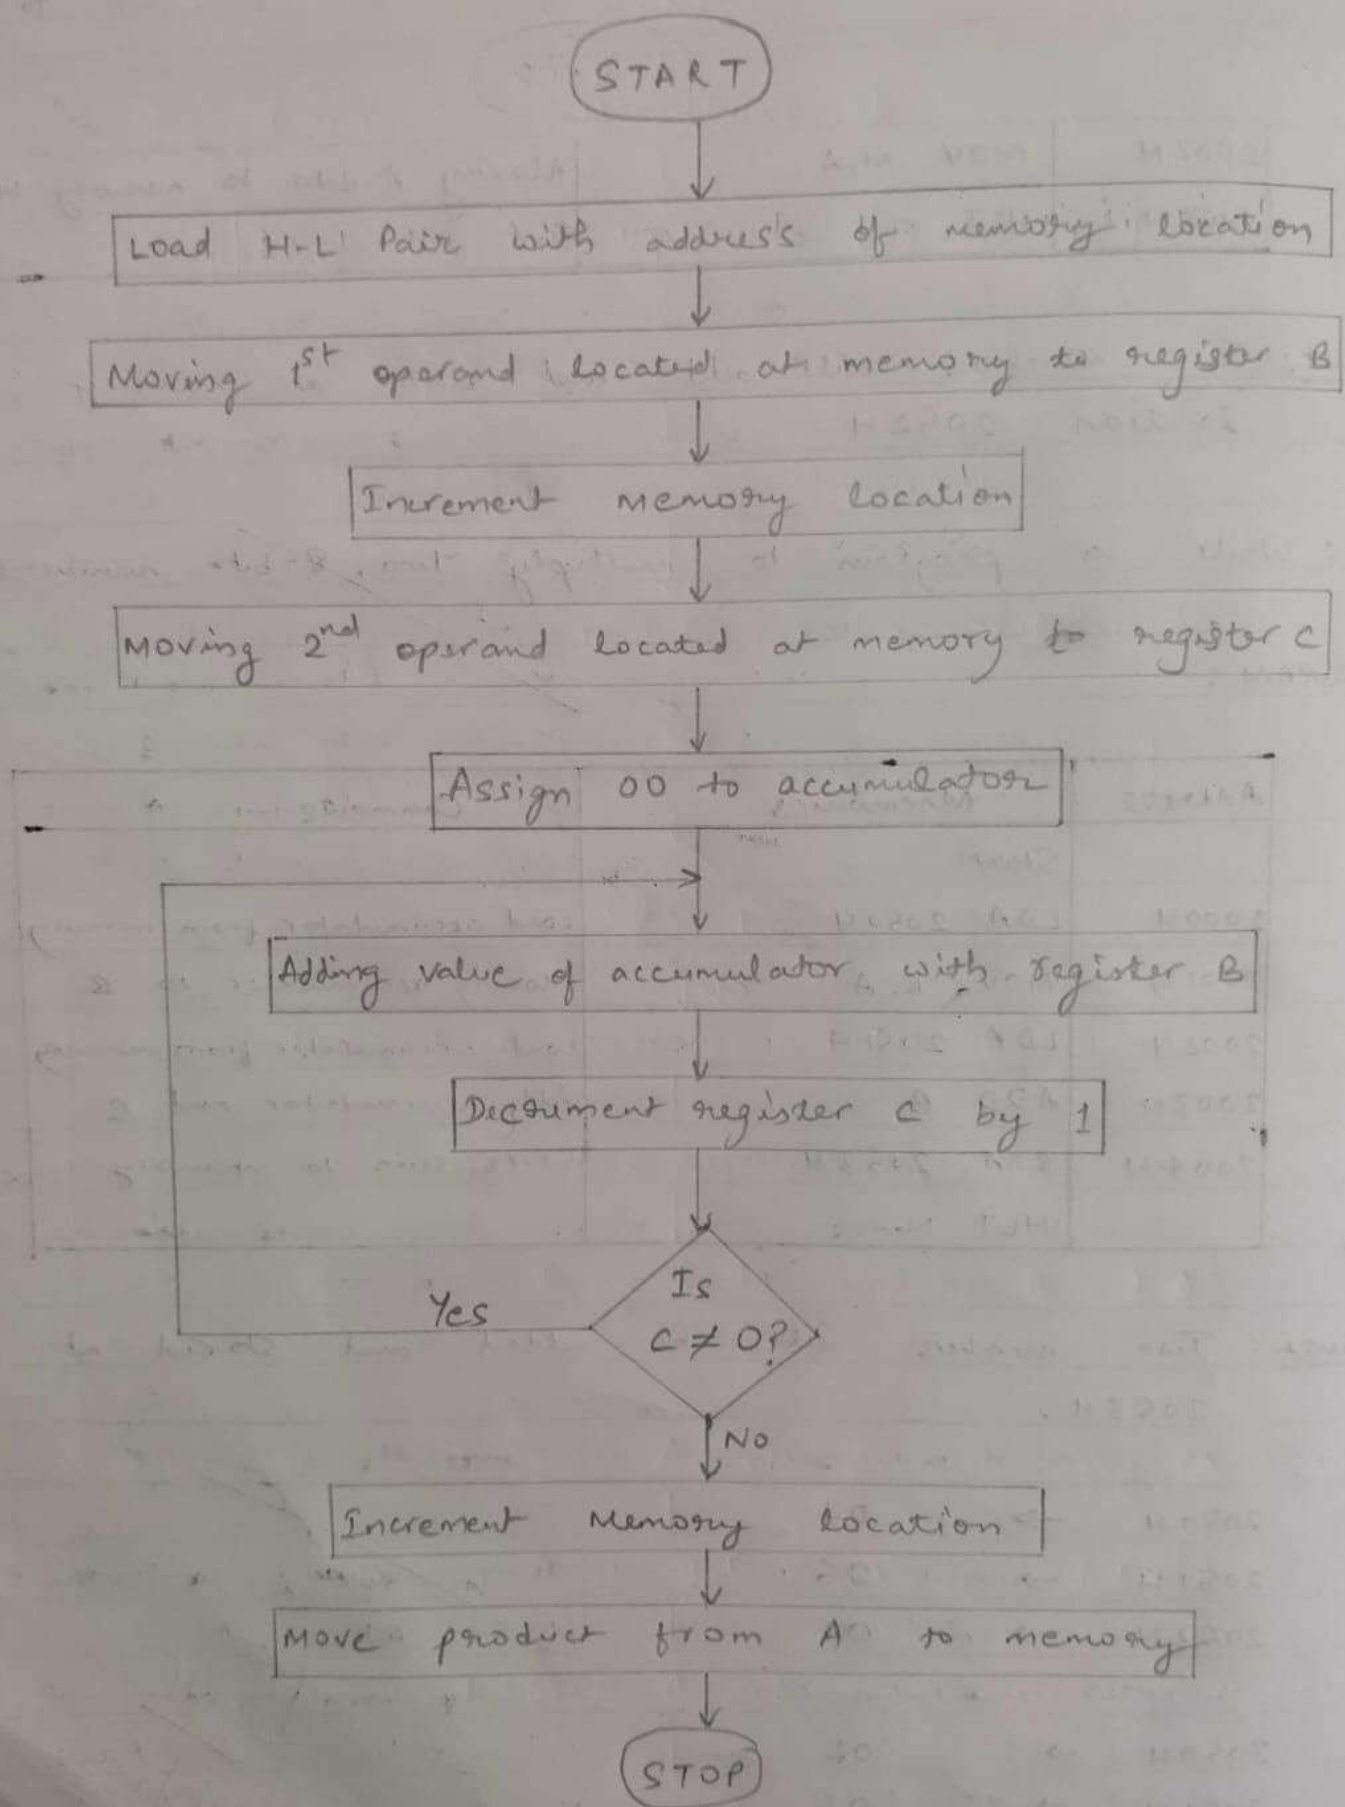 START
Load H-L Pair with address of memory location
Moving 1st operand located at memory to register B
Increment memory location
Moving 2nd operand located at memory to register C
Assign 00 to accumulator
Adding value of accumulator with register B
Decrument register C by 1
Is
C ≠ 0?
Yes
No
Increment Memory location
Move product from A to memory
STOP